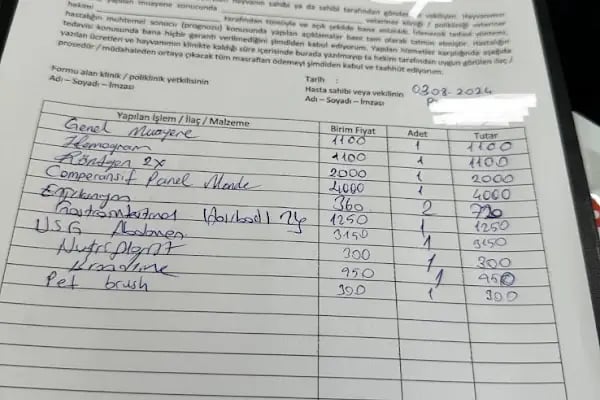 yapılan muayene konusunda
hayvanın sahibi ya da sahibi tarafından
hekimi tarafından tümüyle ve açık şekilde bana anlatıldı.
hastalığın muhtemel sonucu (prognozu) konusunda yapılan açıklamalar bana tam olarak tatmin etmiştir. Hastalığın
tedavisi konusunda bana hiçbir garanti verilmediğini şimdiden kabul ediyorum. Yapılan hizmetler karşılığında aşağıda
yazılan ücretleri ve hayvanımın klinikte kaldığı süre içerisinde burada yazılmayıp ta hekim tarafından uygun görülen ilaç /
prosedür / müdahaleden ortaya çıkacak tüm masrafları ödemeyi şimdiden kabul ve taahhüt ediyorum.
Formu alan klinik / poliklinik yetkilisinin
Adı – Soyadı – İmzası
Tarih : 03 08. 2024
Hasta sahibi veya vekilinin
Adı – Soyadı – İmzası
Yapılan İşlem / İlaç / Malzeme Birim Fiyat Adet Tutar
Genel Muayene 1100 1 1100
Hemogram 1100 1 1100
Röntgen 2x 2000 1 2000
Panel 4000 1 4000
360 2 720
1250 1 1250
USG Abdomen 3150 1 3150
300 1 300
950 1 950
Pet brush 300 1 300